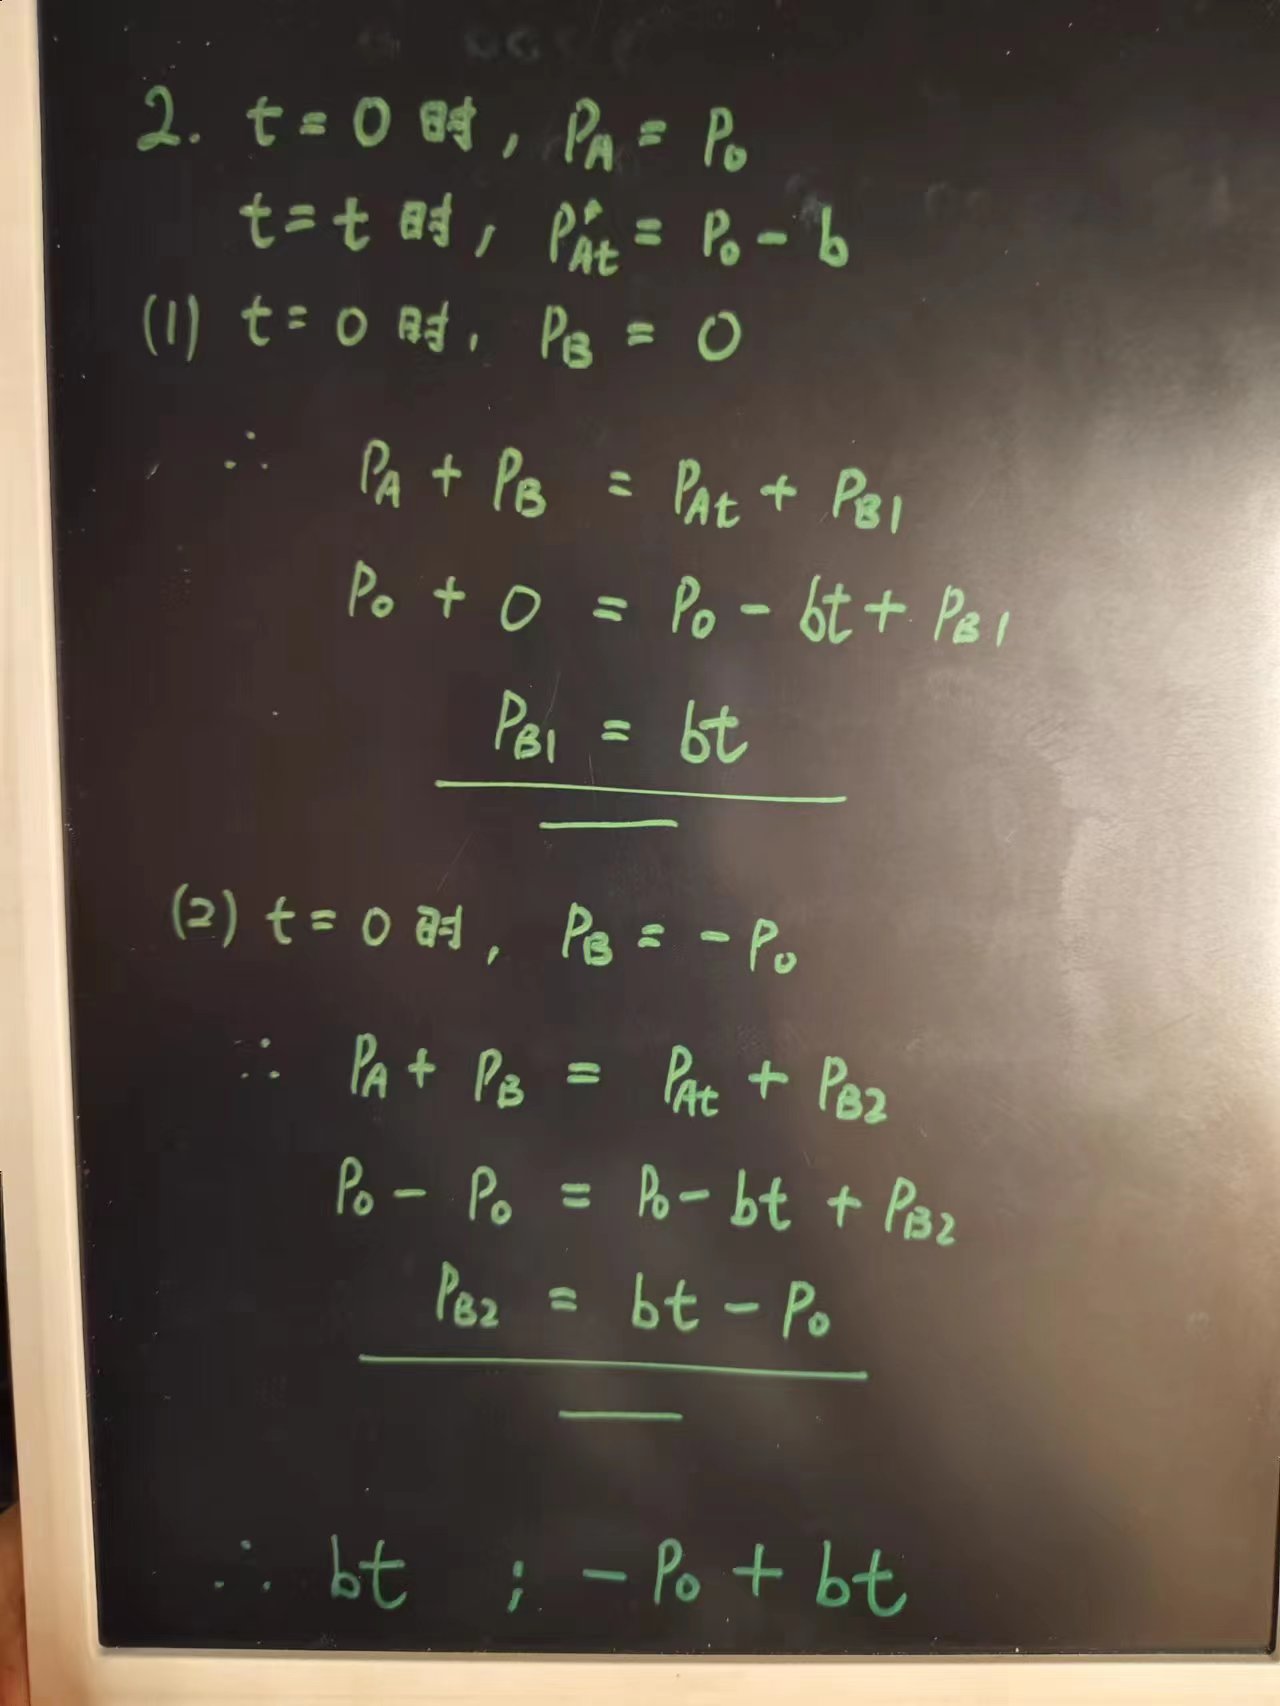 2. t = 0 时, PA = P0
t = t 时, PAt = P0 - b
(1) t = 0 时, PB = 0
∴ PA + PB = PAt + PB1
P0 + 0 = P0 - bt + PB1
PB1 = bt
(2) t = 0 时, PB = -P0
∴ PA + PB = PAt + PB2
P0 - P0 = P0 - bt + PB2
PB2 = bt - P0
∴ bt ; -P0 + bt